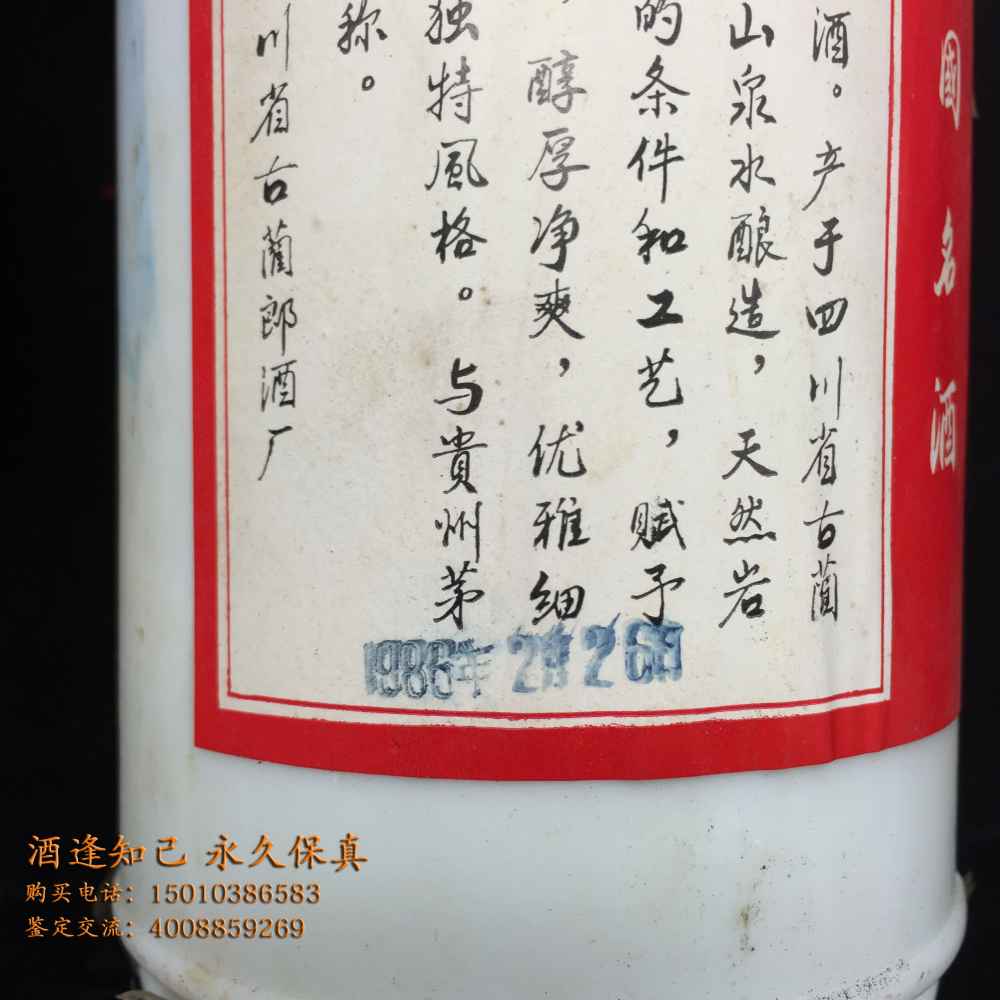 國名酒
酒。产于四川省古蔺
山泉水酿造，天然岩
的条件和工艺，赋予
，醇厚净爽，优雅细
独特風格。与貴州茅
称。
川省古蔺郎酒厂
1986年2月26日
酒逢知己 永久保真
购买电话：15010386583
鉴定交流：4008859269